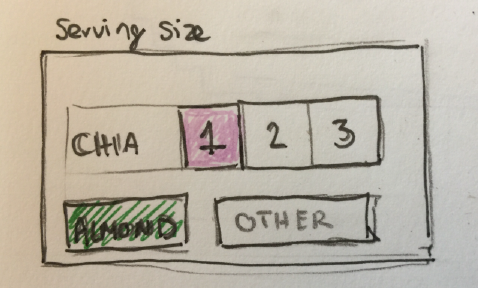 Serving Size
CHIA 1 2 3
ALMOND OTHER